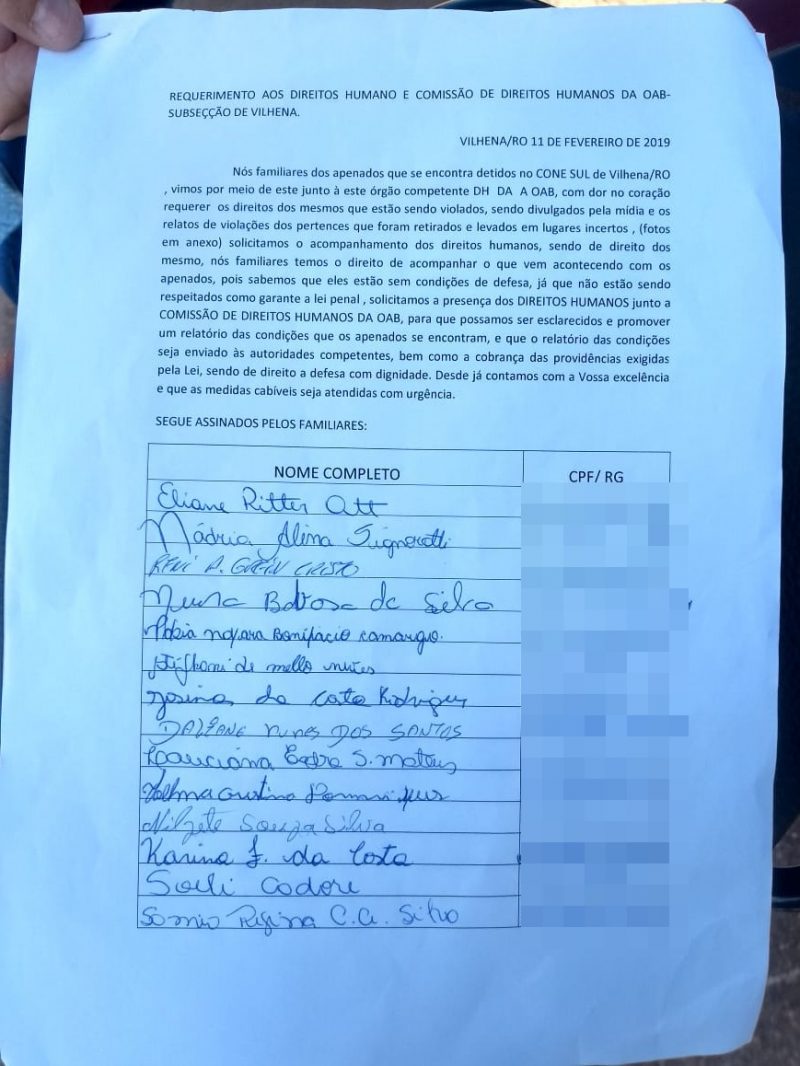 REQUERIMENTO AOS DIREITOS HUMANO E COMISSÃO DE DIREITOS HUMANOS DA OAB-
SUBSECÇÃO DE VILHENA.
VILHENA/RO 11 DE FEVEREIRO DE 2019
Nós familiares dos apenados que se encontra detidos no CONE SUL de Vilhena/RO
, vimos por meio de este junto à este órgão competente DH DA A OAB, com dor no coração
requerer os direitos dos mesmos que estão sendo violados, sendo divulgados pela mídia e os
relatos de violações dos pertences que foram retirados e levados em lugares incertos , (fotos
em anexo) solicitamos o acompanhamento dos direitos humanos, sendo de direito dos
mesmo, nós familiares temos o direito de acompanhar o que vem acontecendo com os
apenados, pois sabemos que eles estão sem condições de defesa, já que não estão sendo
respeitados como garante a lei penal , solicitamos a presença dos DIREITOS HUMANOS junto a
COMISSÃO DE DIREITOS HUMANOS DA OAB, para que possamos ser esclarecidos e promover
um relatório das condições que os apenados se encontram, e que o relatório das condições
seja enviado às autoridades competentes, bem como a cobrança das providências exigidas
pela Lei, sendo de direito a defesa com dignidade. Desde já contamos com a Vossa excelência
e que as medidas cabíveis seja atendidas com urgência.
SEGUE ASSINADOS PELOS FAMILIARES:
NOME COMPLETO CPF/ RG
Eliane Ritter Ott
Mádria Alina
RENI A. CRISTO
da Silva
Bonifacio camargo.
de mello nunes
da Costa Rodrigues
DAIANE nunes DOS SANTOS
S. Mateus

Nilzete Souza Silva
Karina F. da Costa
Sueli Codore
Sonia Regina C.A. Silva